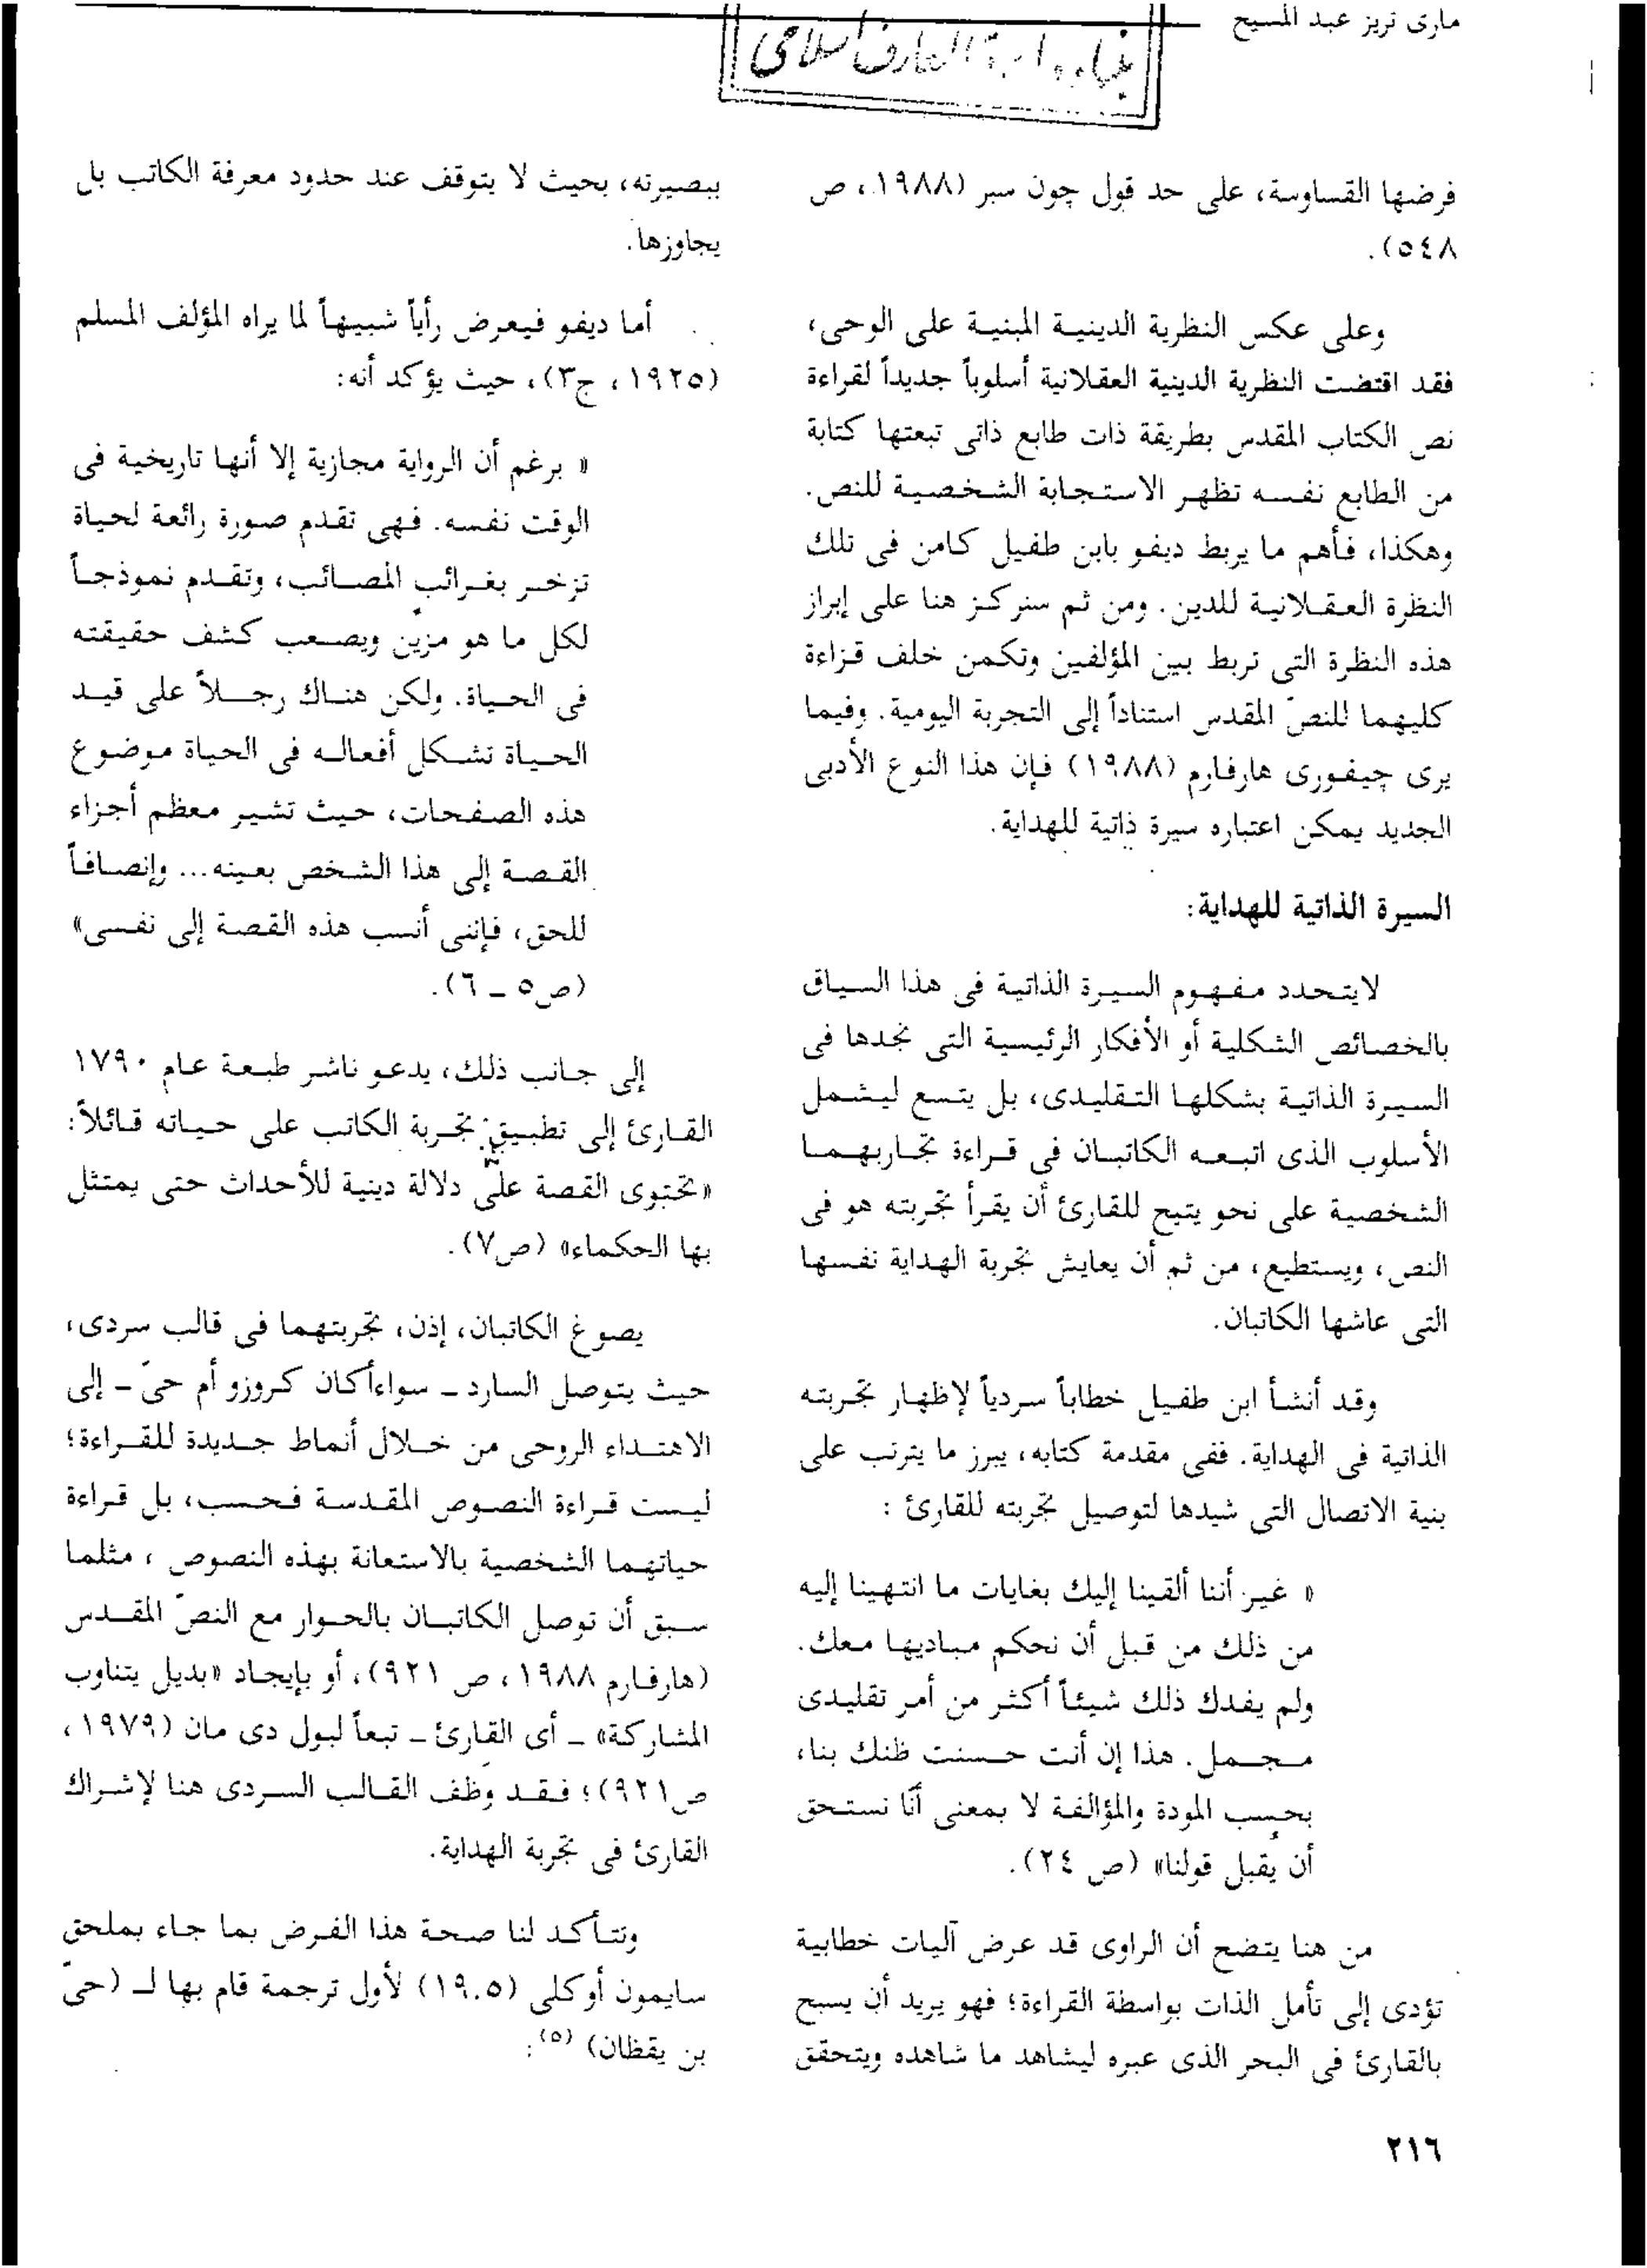 مارى تريز عبد المسيح
فرضها القساوسة، على حد قول چون سبر (١٩٨٨، ص
٥٤٨).
وعلى عكس النظرية الدينية المبنية على الوحى،
فقد اقتضت النظرية الدينية العقلانية أسلوباً جديداً لقراءة
نص الكتاب المقدس بطريقة ذات طابع ذاتى تبعتها كتابة
من الطابع نفسه تظهر الاستجابة الشخصية للنص.
وهكذا، فأهم ما يربط ديفو بابن طفيل كامن فى تلك
النظرة العقلانية للدين. ومن ثم سنركز هنا على إبراز
هذه النظرة التى تربط بين المؤلفين وتكمن خلف قراءة
كليهما للنصّ المقدس استناداً إلى التجربة اليومية. وفيما
يرى چيفورى هارفارم (١٩٨٨) فإن هذا النوع الأدبى
الجديد يمكن اعتباره سيرة ذاتية للهداية.
السيرة الذاتية للهداية:
لايتحدد مفهوم السيرة الذاتية فى هذا السياق
بالخصائص الشكلية أو الأفكار الرئيسية التى نجدها فى
السيرة الذاتية بشكلها التقليدى، بل يتسع ليشمل
الأسلوب الذى اتبعه الكاتبان فى قراءة تجاربهما
الشخصية على نحو يتيح للقارئ أن يقرأ تجربته هو فى
النص، ويستطيع، من ثم أن يعايش تجربة الهداية نفسها
التى عاشها الكاتبان.
وقد أنشأ ابن طفيل خطاباً سردياً لإظهار تجربته
الذاتية فى الهداية. ففى مقدمة كتابه، يبرز ما يترتب على
بنية الاتصال التى شيدها لتوصيل تجربته للقارئ :
« غير أننا ألقينا إليك بغايات ما انتهينا إليه
من ذلك من قبل أن نحكم مباديها معك.
ولم يفدك ذلك شيئاً أكثر من أمر تقليدى
مجمل. هذا إن أنت حسنت ظنك بنا،
بحسب المودة والمؤالفة لا بمعنى أنّا نستحق
أن يُقبل قولنا» (ص ٢٤).
من هنا يتضح أن الراوى قد عرض آليات خطابية
تؤدى إلى تأمل الذات بواسطة القراءة؛ فهو يريد أن يسبح
بالقارئ فى البحر الذى عبره ليشاهد ما شاهده ويتحقق
ببصيرته، بحيث لا يتوقف عند حدود معرفة الكاتب بل
يجاوزها.
أما ديفو فيعرض رأياً شبيهاً لما يراه المؤلف المسلم
(١٩٢٥، ج٣)، حيث يؤكد أنه:
« برغم أن الرواية مجازية إلا أنها تاريخية فى
الوقت نفسه. فهى تقدم صورة رائعة لحياة
تزخر بغرائب المصائب، وتقدم نموذجاً
لكل ما هو مزين ويصعب كشف حقيقته
فى الحياة. ولكن هناك رجلاً على قيد
الحياة تشكل أفعاله فى الحياة موضوع
هذه الصفحات، حيث تشير معظم أجزاء
القصة إلى هذا الشخص بعينه... وإنصافاً
للحق، فإننى أنسب هذه القصة إلى نفسى»
(ص٥ ـ ٦).
إلى جانب ذلك، يدعو ناشر طبعة عام ١٧٩٠
القارئ إلى تطبيق تجربة الكاتب على حياته قائلاً:
«تحتوى القصة على دلالة دينية للأحداث حتى يمتثل
بها الحكماء» (ص٧).
يصوغ الكاتبان، إذن، تجربتهما فى قالب سردى،
حيث يتوصل السارد ـ سواءأكان كروزو أم حىّ ـ إلى
الاهتداء الروحى من خلال أنماط جديدة للقراءة؛
ليست قراءة النصوص المقدسة فحسب، بل قراءة
حياتهما الشخصية بالاستعانة بهذه النصوص ، مثلما
سبق أن توصل الكاتبان بالحوار مع النصّ المقدس
(هارفارم ١٩٨٨، ص ٩٢١)، أو بإيجاد «بديل يتناوب
المشاركة» ـ أى القارئ ـ تبعاً لبول دى مان (١٩٧٩،
ص٩٢١)؛ فقد وَظف القالب السردى هنا لإشراك
القارئ فى تجربة الهداية.
وتتأكد لنا صحة هذا الفرض بما جاء بملحق
سايمون أوكلى (١٩.٥) لأول ترجمة قام بها لـ (حىّ
بن يقظان) (٥):
٢١٦